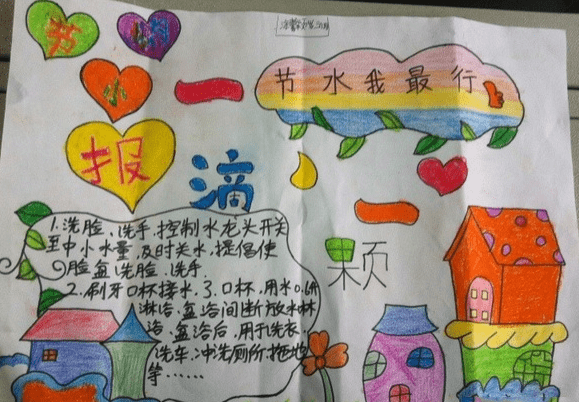 小
报
节水我最行
一
滴
一
颗
1.洗脸、洗手、控制水龙头开关
至中小水量,及时关水,提倡使
脸盆洗脸、洗手.
2.刷牙口杯接水,3.口杯,用水
淋浴,盆浴间断放水淋
浴,盆浴后,用于洗衣,
洗车,冲洗厕所,拖地
等……